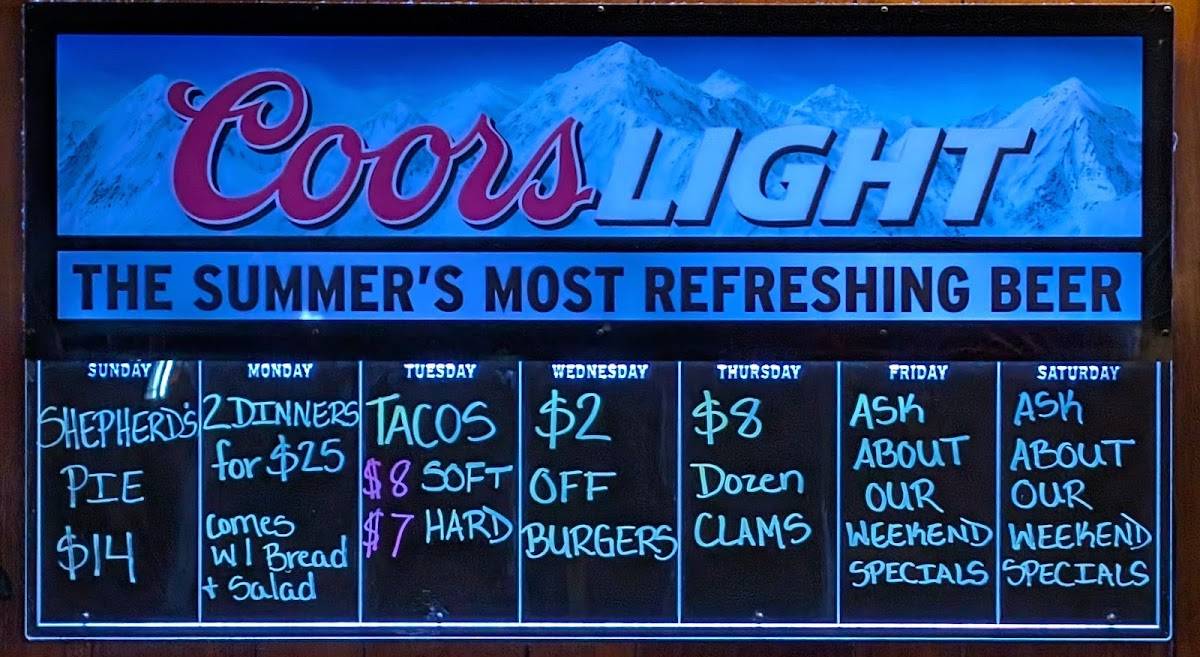 Coors LIGHT
THE SUMMER'S MOST REFRESHING BEER
SUNDAY
SHEPHERD'S
PIE
$14
MONDAY
2 DINNERS
for $25
comes
W/ Bread
+ Salad
TUESDAY
TACOS
$8 SOFT
$7 HARD
WEDNESDAY
$2
OFF
BURGERS
THURSDAY
$8
Dozen
CLAMS
FRIDAY
ASK
ABOUT
OUR
WEEKEND
SPECIALS
SATURDAY
ASK
ABOUT
OUR
WEEKEND
SPECIALS